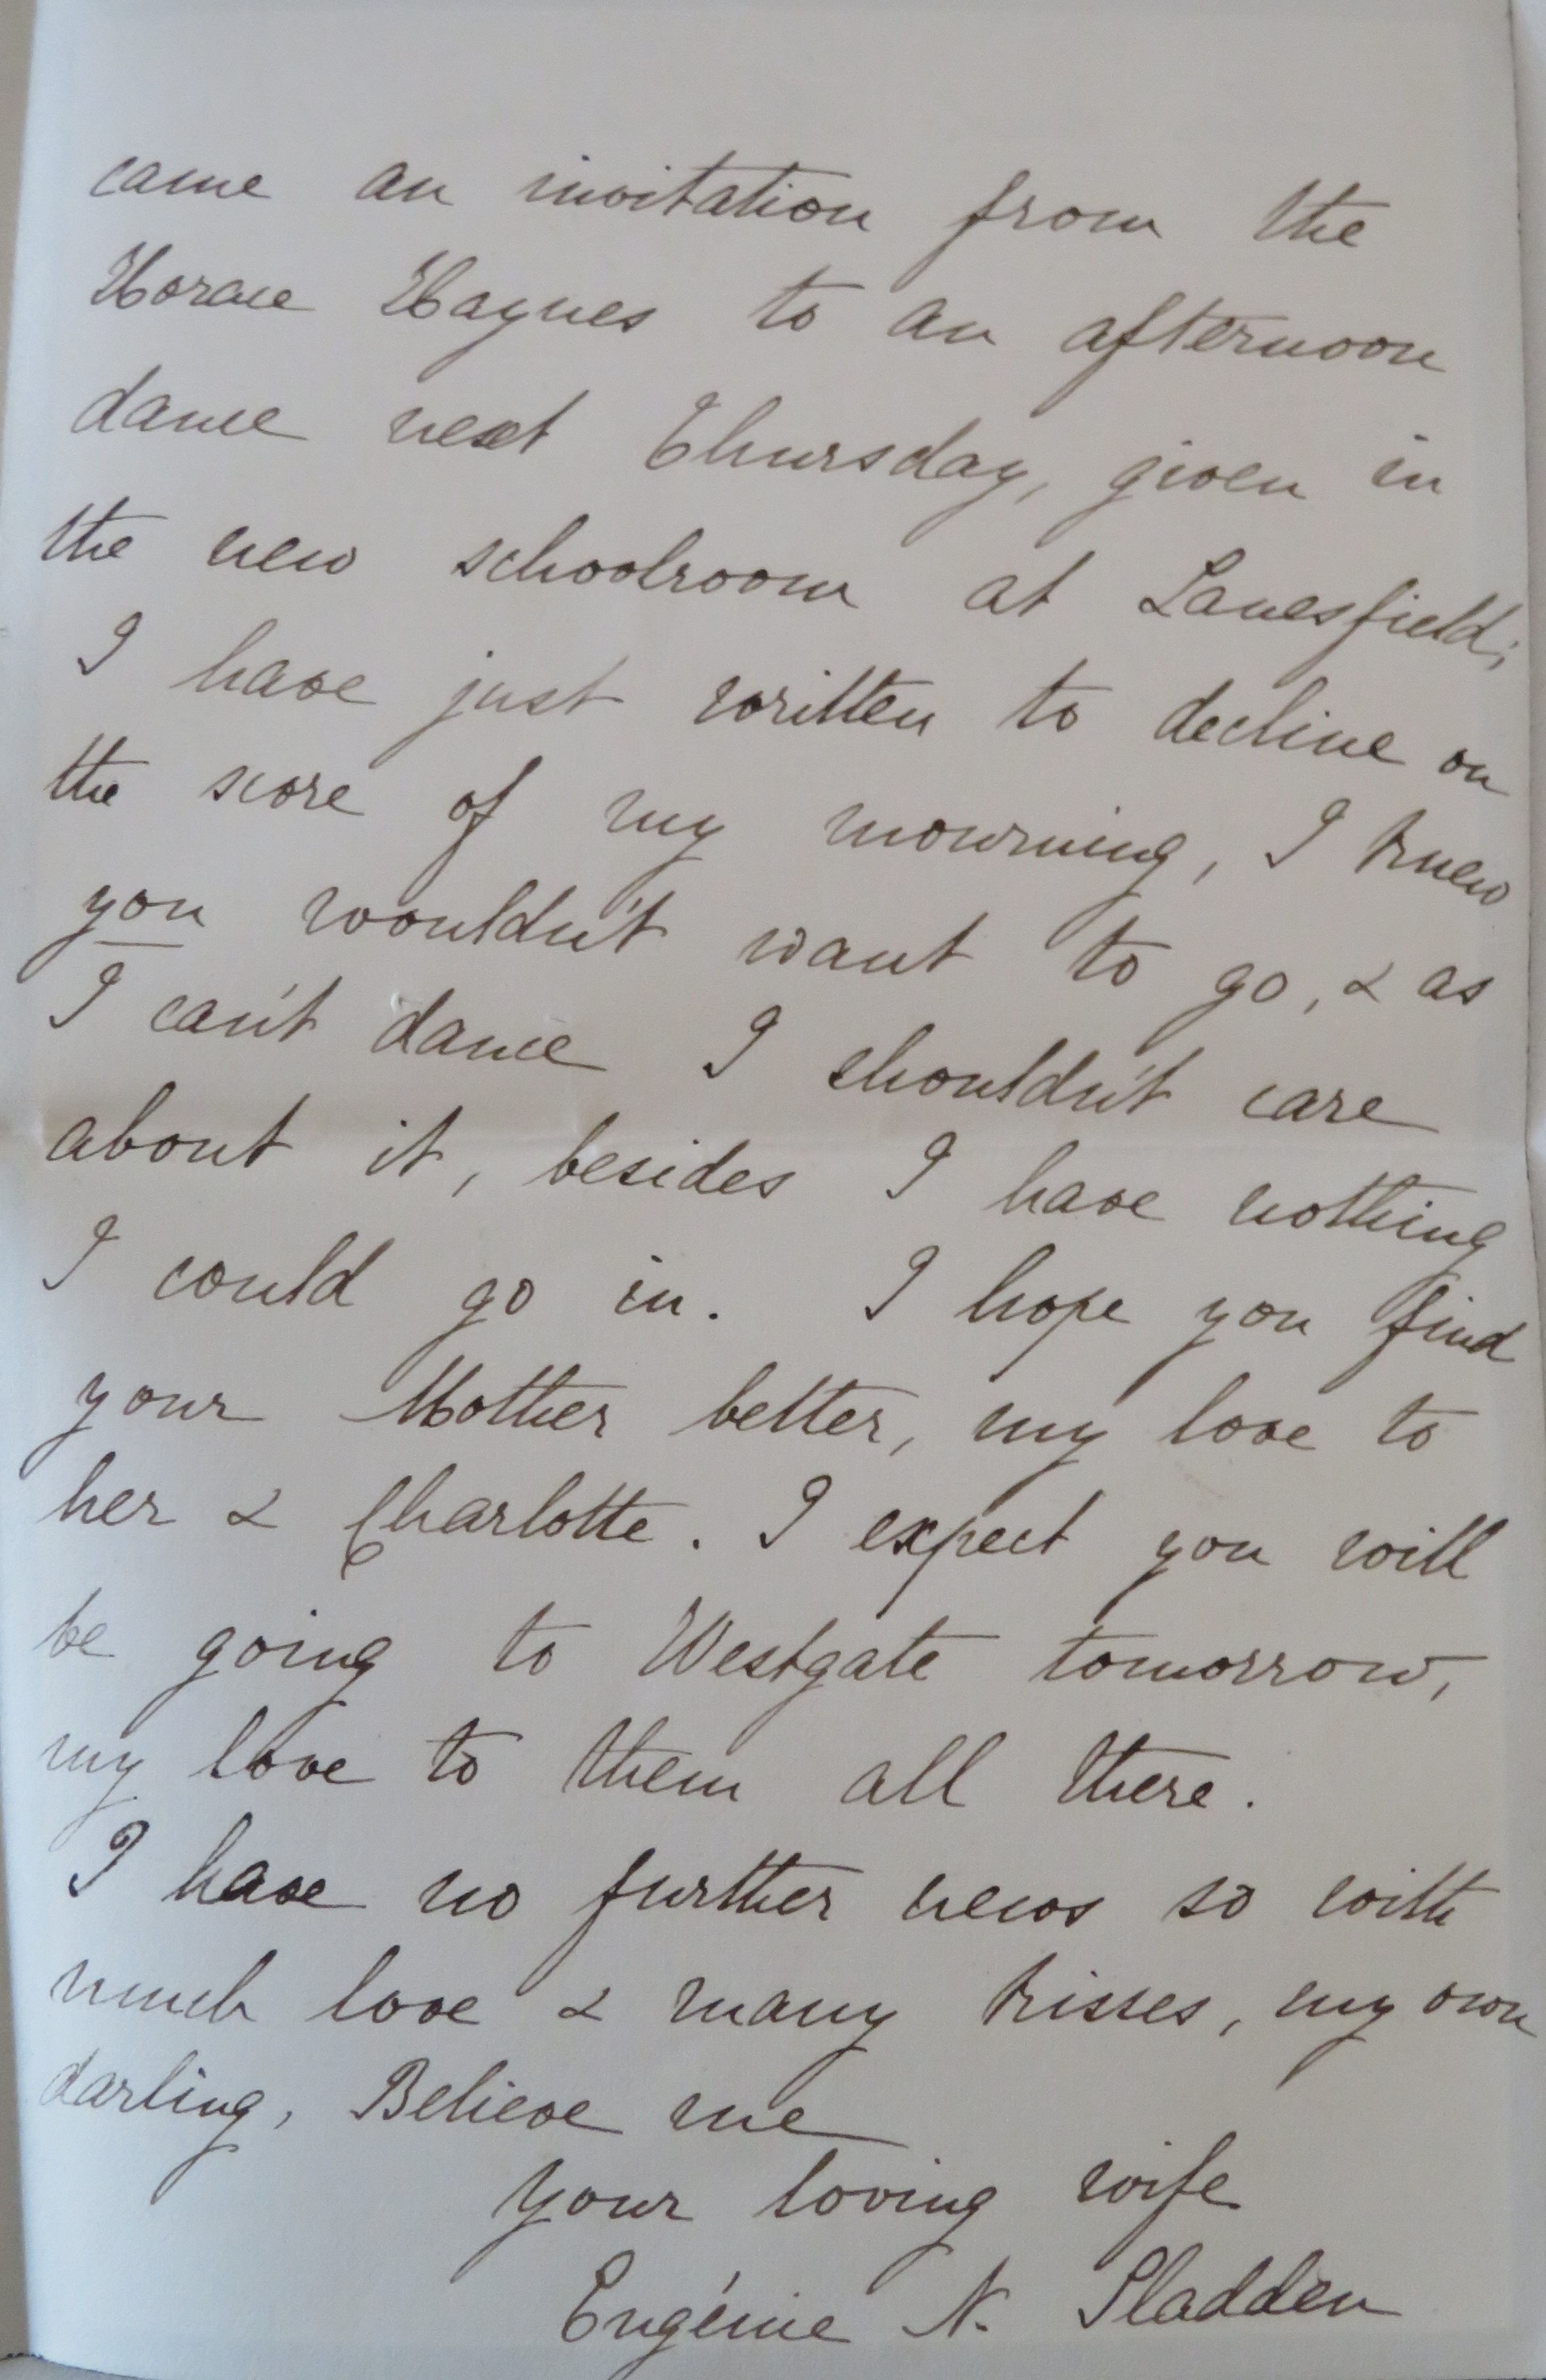 came an invitation from the
Horace Haynes to an afternoon
dance next Thursday, given in
the new schoolroom at Lanesfield;
I have just written to decline on
the score of my mourning, I knew
you wouldn't want to go, & as
I can't dance I shouldn't care
about it, besides I have nothing
I could go in. I hope you find
your Mother better, my love to
her & Charlotte. I expect you will
be going to Westgate tomorrow,
my love to them all there.
I have no further news so with
much love & many kisses, my own
darling, Believe me
your loving wife
Eugénie N. Sladden